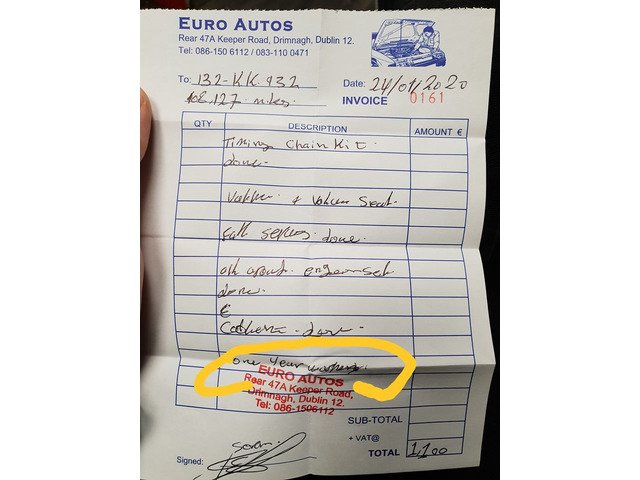 EURO AUTOS
Rear 47A Keeper Road, Drimnagh, Dublin 12.
Tel: 086-150 6112 / 083-110 0471
To: 132-KK.932
Date: 24/01/2020
108.127. miles
INVOICE 0161
QTY DESCRIPTION AMOUNT €
Timing Chain Kit.
done.
+ Seat.
done.
set
done.
€
done
one year
EURO AUTOS
Rear 47A Keeper Road,
Drimnagh, Dublin 12.
Tel: 086-1506112
SUB-TOTAL
+ VAT@
TOTAL 1,100
Signed: